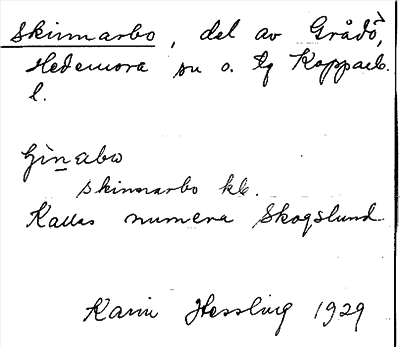 Skinnarbo, del av Grådö,
Hedemora sn o. tg Kopparb.
l.
skinnarbo kb.
Kallas numera Skogslund
Karin Hessling 1929